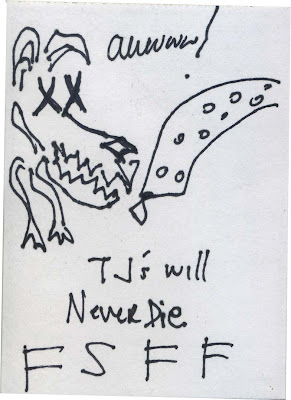 auwww!
TJ's will
Never Die.
F S F F